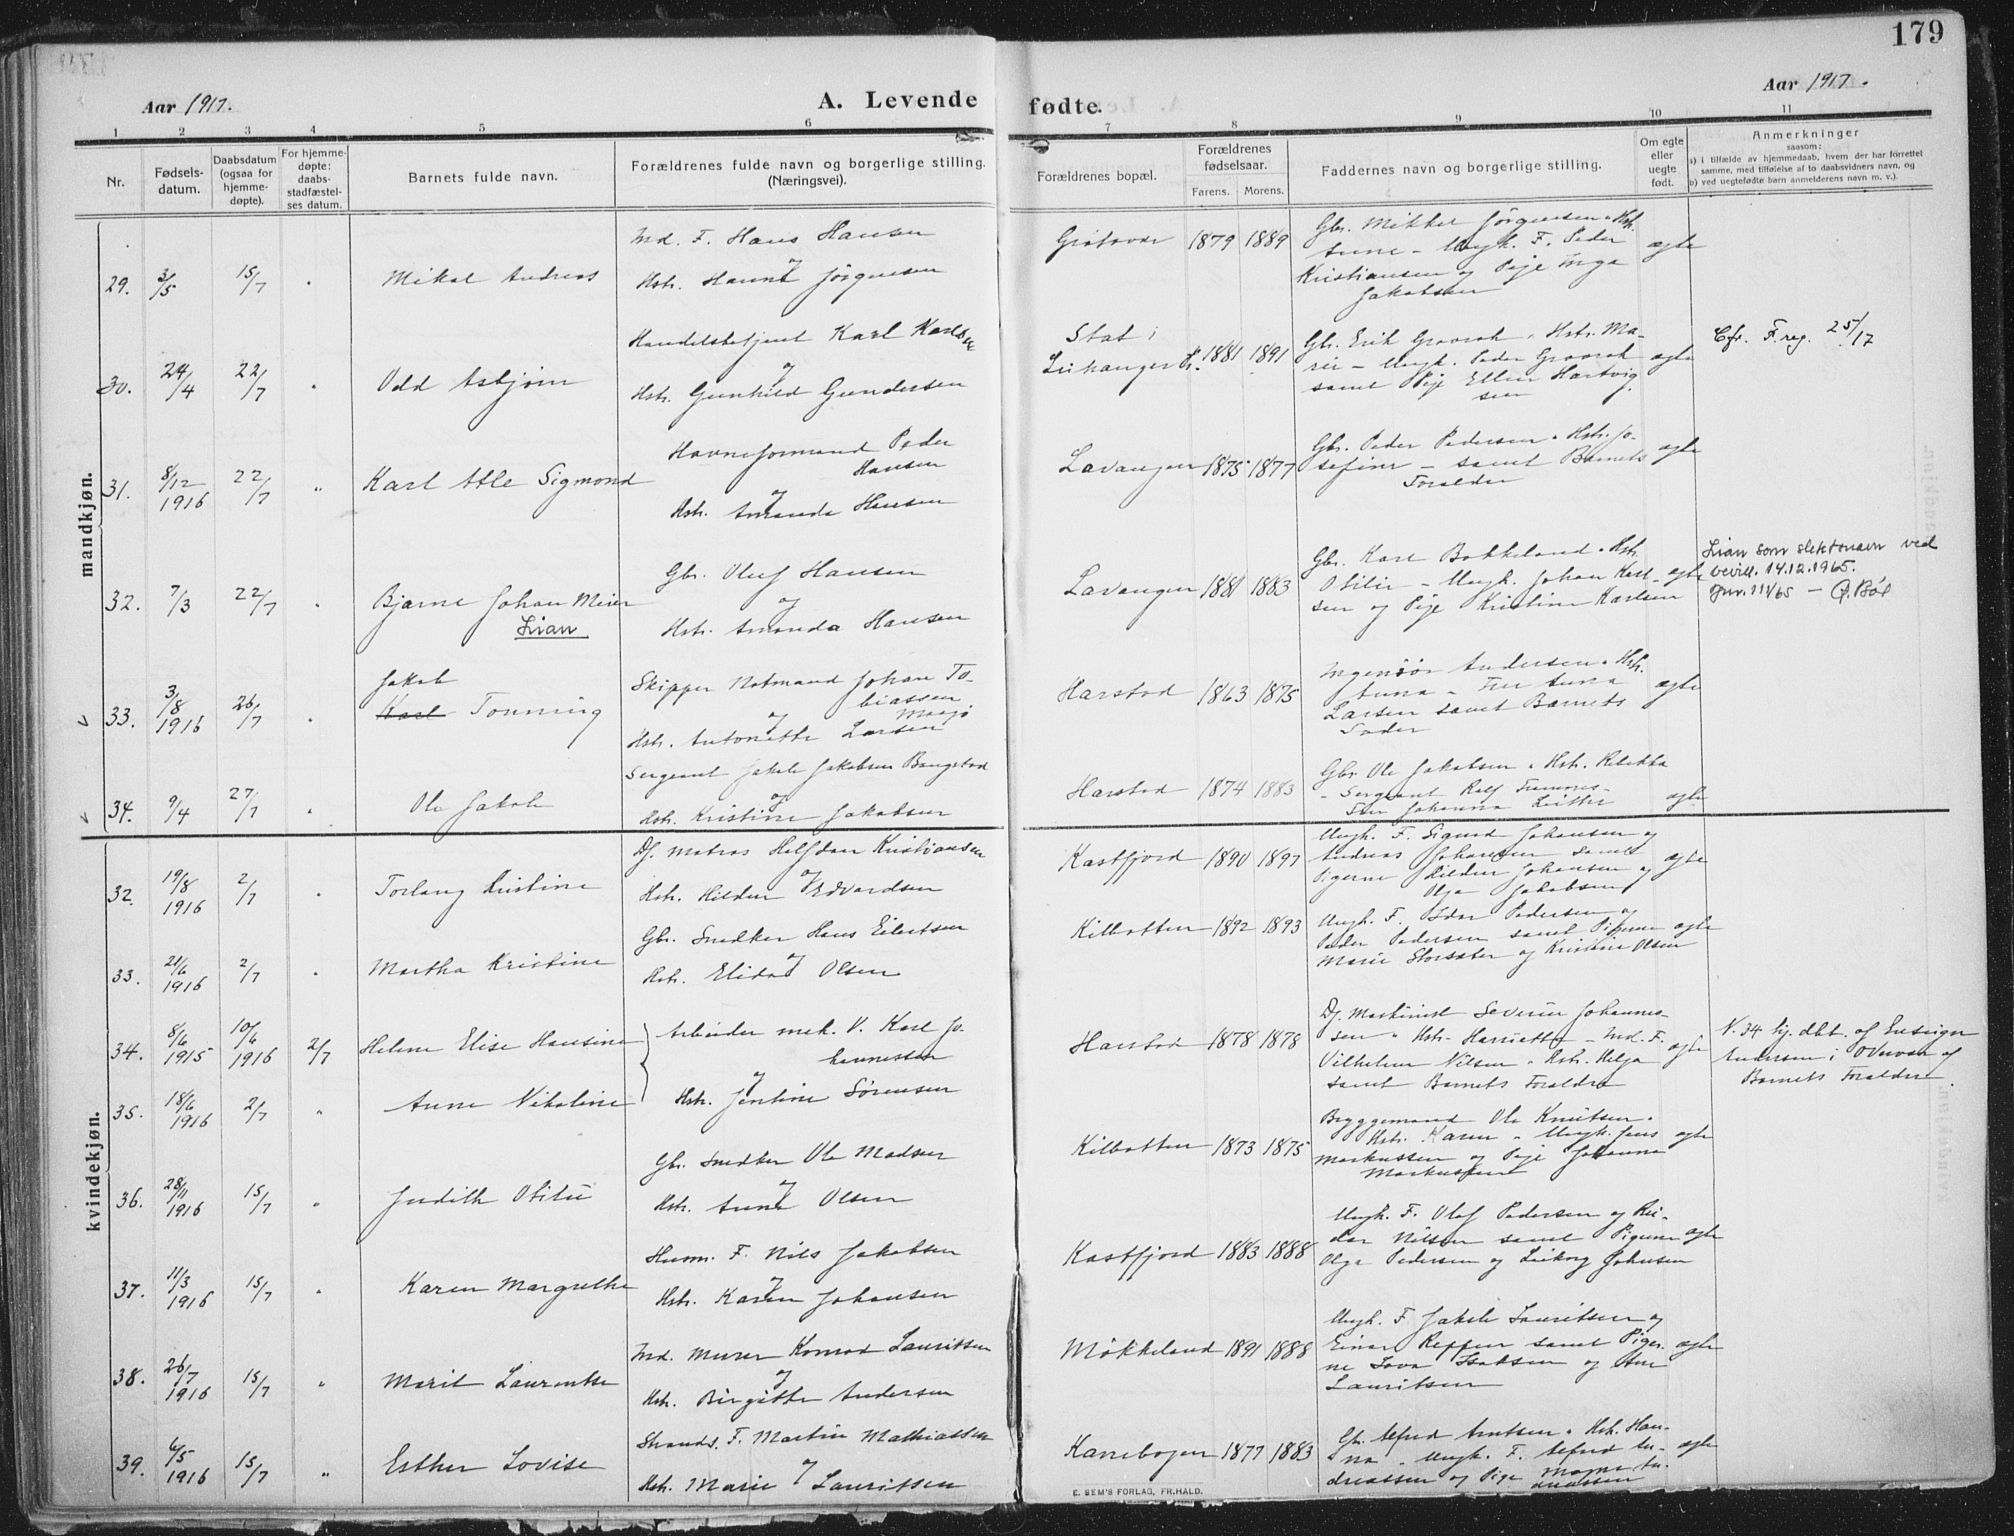 179
Aar 1917.
A. Levende fødte.
Aar 1917.
1 2 3 4 5 6 7 8 9 10 11
Nr.
Fødsels-
datum.
Daabsdatum
(ogsaa for
hjemme-
døpte).
For hjemme-
døpte:
daabs-
stadfæstel-
ses datum.
Barnets fulde navn.
Forældrenes fulde navn og borgerlige stilling.
(Næringsvei).
Forældrenes bopæl.
Forældrenes
fødselsaar.
Farens. Morens.
Faddernes navn og borgerlige stilling.
Om egte
eller
uegte
født.
Anmerkninger
saasom:
a) i tilfælde av hjemmedaab, hvem der har forrettet
samme, med tilføielse af to daabsvidners navn, og
b) ved uegtefødte barn anmelderens navn m. v.).
mandkjøn.
29. 3/5 15/7 " Mikal Andreas
Ind. F. Hans Hansen
og
Hstr. Hanna Jørgensen
1879 1889
Gbr. Mikkel Jørgensen " Hstr.
Anne - Ungk. F. Peder
Kristiansen og Pige Inga
Jakobsen
egte
30. 24/4 22/7 " Odd Asbjørn
Handelsbetjent Karl Karlsen
og
Hstr. Gunhild Gundersen
Stat i
1881 1891
Gbr. Erik Gravrok " Hstr. Ma-
rie - Ungk. Peder Gravrok
samt Pige Ellen Hartvig-
sen
egte
Cfr. F. reg. 25/17
31. 8/12 1916 22/7 " Karl Atle Sigmond
Havneformand Peder
Hansen
og
Hstr. Amanda Hansen
Lavangen 1875 1877
Gbr. Peder Pedersen " Hstr. Jo-
sefine - samt Barnets
Foreldre
egte
32. 7/3 22/7 " Bjarne Johan Meier
Lian
Gbr. Oluf Hansen
og
Hstr. Amanda Hansen
Lavangen 1881 1883
Gbr. Karl Bakkeland " Hstr.
Otilie - Ungk. Johan Karl-
sen og Pige Kristine Karlsen
egte
Lian som slektsnavn ved
bevill. 14.12.1965.
Jnr. 111/65 - Q. Bøe
33. 3/8 1916 26/7 " Jakob
Karl Tonning
Skipper Notmand Johan To-
biassen
og
Hstr. Antonette Larsen
Harstad 1863 1875
Ingeniør Andersen " Hstr.
Anna - Fru Anna
Larsen samt Barnets
Fader
egte
34. 9/4 27/7 " Ole Jakob
Sergeant Jakob Jakobsen Bangstad
og
Hstr. Kristine Jakobsen
Harstad 1874 1883
Gbr. Ole Jakobsen " Hstr. Rebekka
- Sergeant Rolf
egte
kvindekjøn.
32. 19/8 1916 2/7 " Torlaug Kristine
Df. Matros Halfdan Kristiansen
og
Hstr. Hildur Edvardsen
Kastfjord 1890 1897
Ungk. F. Sigurd Johansen og
Andreas Johansen samt
Pigerne Hildur Johansen og
Olga Jakobsen
egte
33. 21/6 1916 2/7 " Martha Kristine
Gbr. Snedker Hans Eilertsen
og
Hstr. Elida Olsen
Kilbotten 1892 1893
Ungk. F. Idar Pedersen og
Peder Pedersen samt Pigerne
Marie Storsæter og Kristine Olsen
egte
34. 8/6 1915 10/6 1916 2/7 Helene Elise Hansine
Arbeider mek. V. Karl Jo-
hannessen
og
Hstr. Jentine Sørensen
Harstad 1878 1878
Df. Maskinist Severin Johannes-
sen " Hstr. Harriette - Ind. F.
Vilhelm Nilsen " Hstr. Helga
samt Barnets Foreldre
egte
N. 34 hj. dbt. af
Andersen i af
Barnets Foreldre.
35. 18/6 1916 2/7 " Anne Nikoline
36. 28/11 1916 15/7 " Judith Otilie
Gbr. Snedker Ole Madsen
og
Hstr. Anna Olsen
Kilbotten 1873 1875
Byggemand Ole Knutsen "
Hstr. Karen " Ungk. Jens
Markussen og Pige Johanna
Markussen
egte
37. 11/3 1916 15/7 " Karen Margrethe
Husm. F. Nils Jakobsen
og
Hstr. Karen Johansen
Kastfjord 1883 1888
Ungk. F. Olaf Pedersen og Rei-
dar Nilsen samt Pigerne
Olga Pedersen og Johnsen
egte
38. 26/7 1916 15/7 " Marit Laurentse
Ind. Murer Konrad Lauritsen
og
Hstr. Birgitte Andersen
Møkkeland 1891 1888
Ungk. F. Jakob Lauritsen og
Einar Reppen samt Piger-
ne Lova Isaksen og Ane
Lauritsen
egte
39. 6/5 1916 15/7 " Esther Lovise
Strands. F. Martin Mathiassen
og
Hstr. Marie Lauritsen
Kanebogen 1877 1883
Gbr. Alfred Arntsen " Hstr. Han-
na " Ungk. F. Alfred An-
dreassen og Pige Magna An-
dreassen
egte
E. SEM'S FORLAG, FR.HALD.